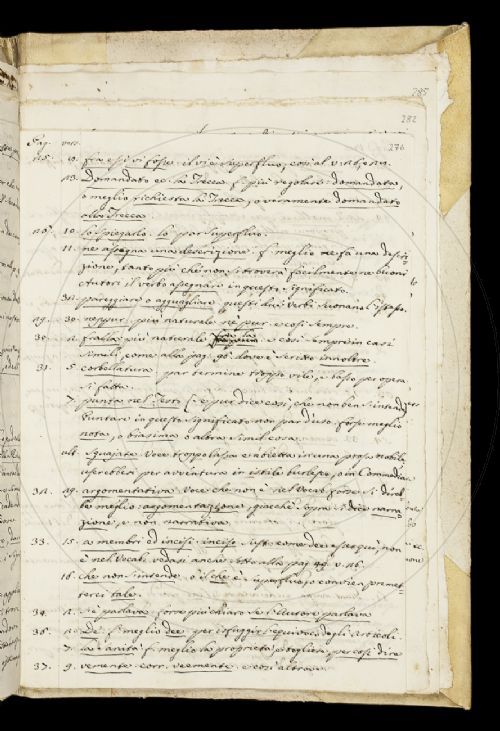 285
282
270
Pag. vers.
25. 9. fra essi vi fosse. il vi è superfluo, così al v. 18, e 19.
13. domandato ec. la Trecca f. più regolare domandata,
o meglio richiesta la Trecca, o veramente domandato
alla Trecca
26. 10. lo spiegarlo. lo par superfluo.
11. ne assegna una descrizione. f. meglio ne fa una descri=
zione, tanto più che non si troverà facilmente ne buoni
Autori il verbo assegnare in questo significato.
32. pareggiare o agguagliare questi due verbi suonano l'istesso.
29. 30. neppur più naturale nè pur. e così sempre.
30. 2. fralla più naturale fra la e così sempre in casi
simili, come alla pag. 90. dove è scritto innoltre.
31. 5. corbellatura par termine troppo vile, e basso per opera
sì fatta.
7. punta nel Testo
buntare in questo significato non par d'uso. forse meglio
nota, o biasima o altra simil cosa.
ult. Sguajate Voce troppo bassa e abietta in una prosa nobile,
userebbesi per avventura in istile burlesco, o in Commedia.
32. 29. argomentativa Voce che non è nel Vocab. forse si direb=
be meglio argomentazione, giacchè sopra si dice narra=
zione, e non narrativa.
33. 15. a membri ed incisi inciso sust. come dee esser qui, non
è nel Vocab. vedasi anche sotto alla pag. 49. v. 16.
16. che non s'intende. o il che è superfluo, o conviene premet=
terci tale.
34. 2. Si parlava forse più chiaro Se l'Autore parlava
36. 2. De' f. meglio dee per isfuggir l'equivoco degli Articoli.
7. la f. meglio la proprietà, e togliere, per così dire
37. 9. vemente. corr. veemente. e così altrove.